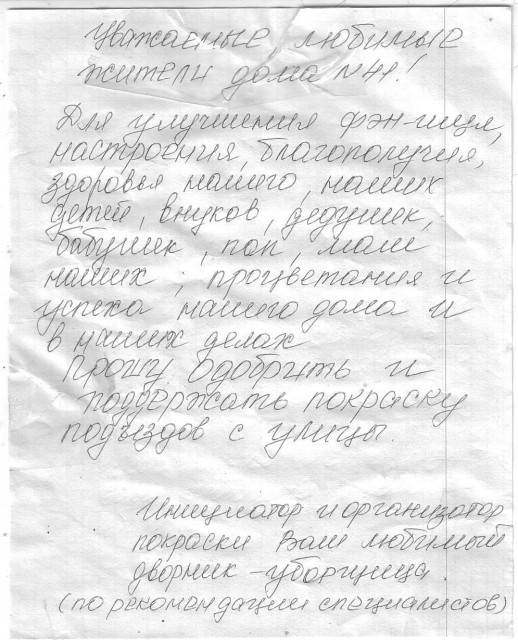 Уважаемые, любимые
жители дома N41!
Для улучшения фэн-шуя,
настроения, благополучия,
здоровья нашего, наших
детей, внуков, дедушек,
бабушек, пап, мам
наших, процветания и
успеха нашего дома и
в наших делах
Прошу одобрить и
поддержать покраску
подъездов с улицы.
Инициатор и организатор
покраски Ваш любимый
дворник-уборщица.
(по рекомендации специалистов)